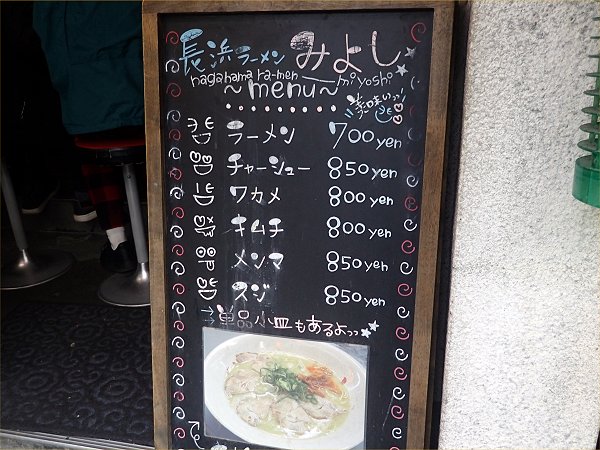 長浜ラーメン みよし
nagahama ra-men miyoshi
~menu~
美味いっ!
ラーメン 700yen
チャーシュー 850yen
ワカメ 800yen
キムチ 800yen
メンマ 850yen
スジ 850yen
→単品小皿もあるよっっ